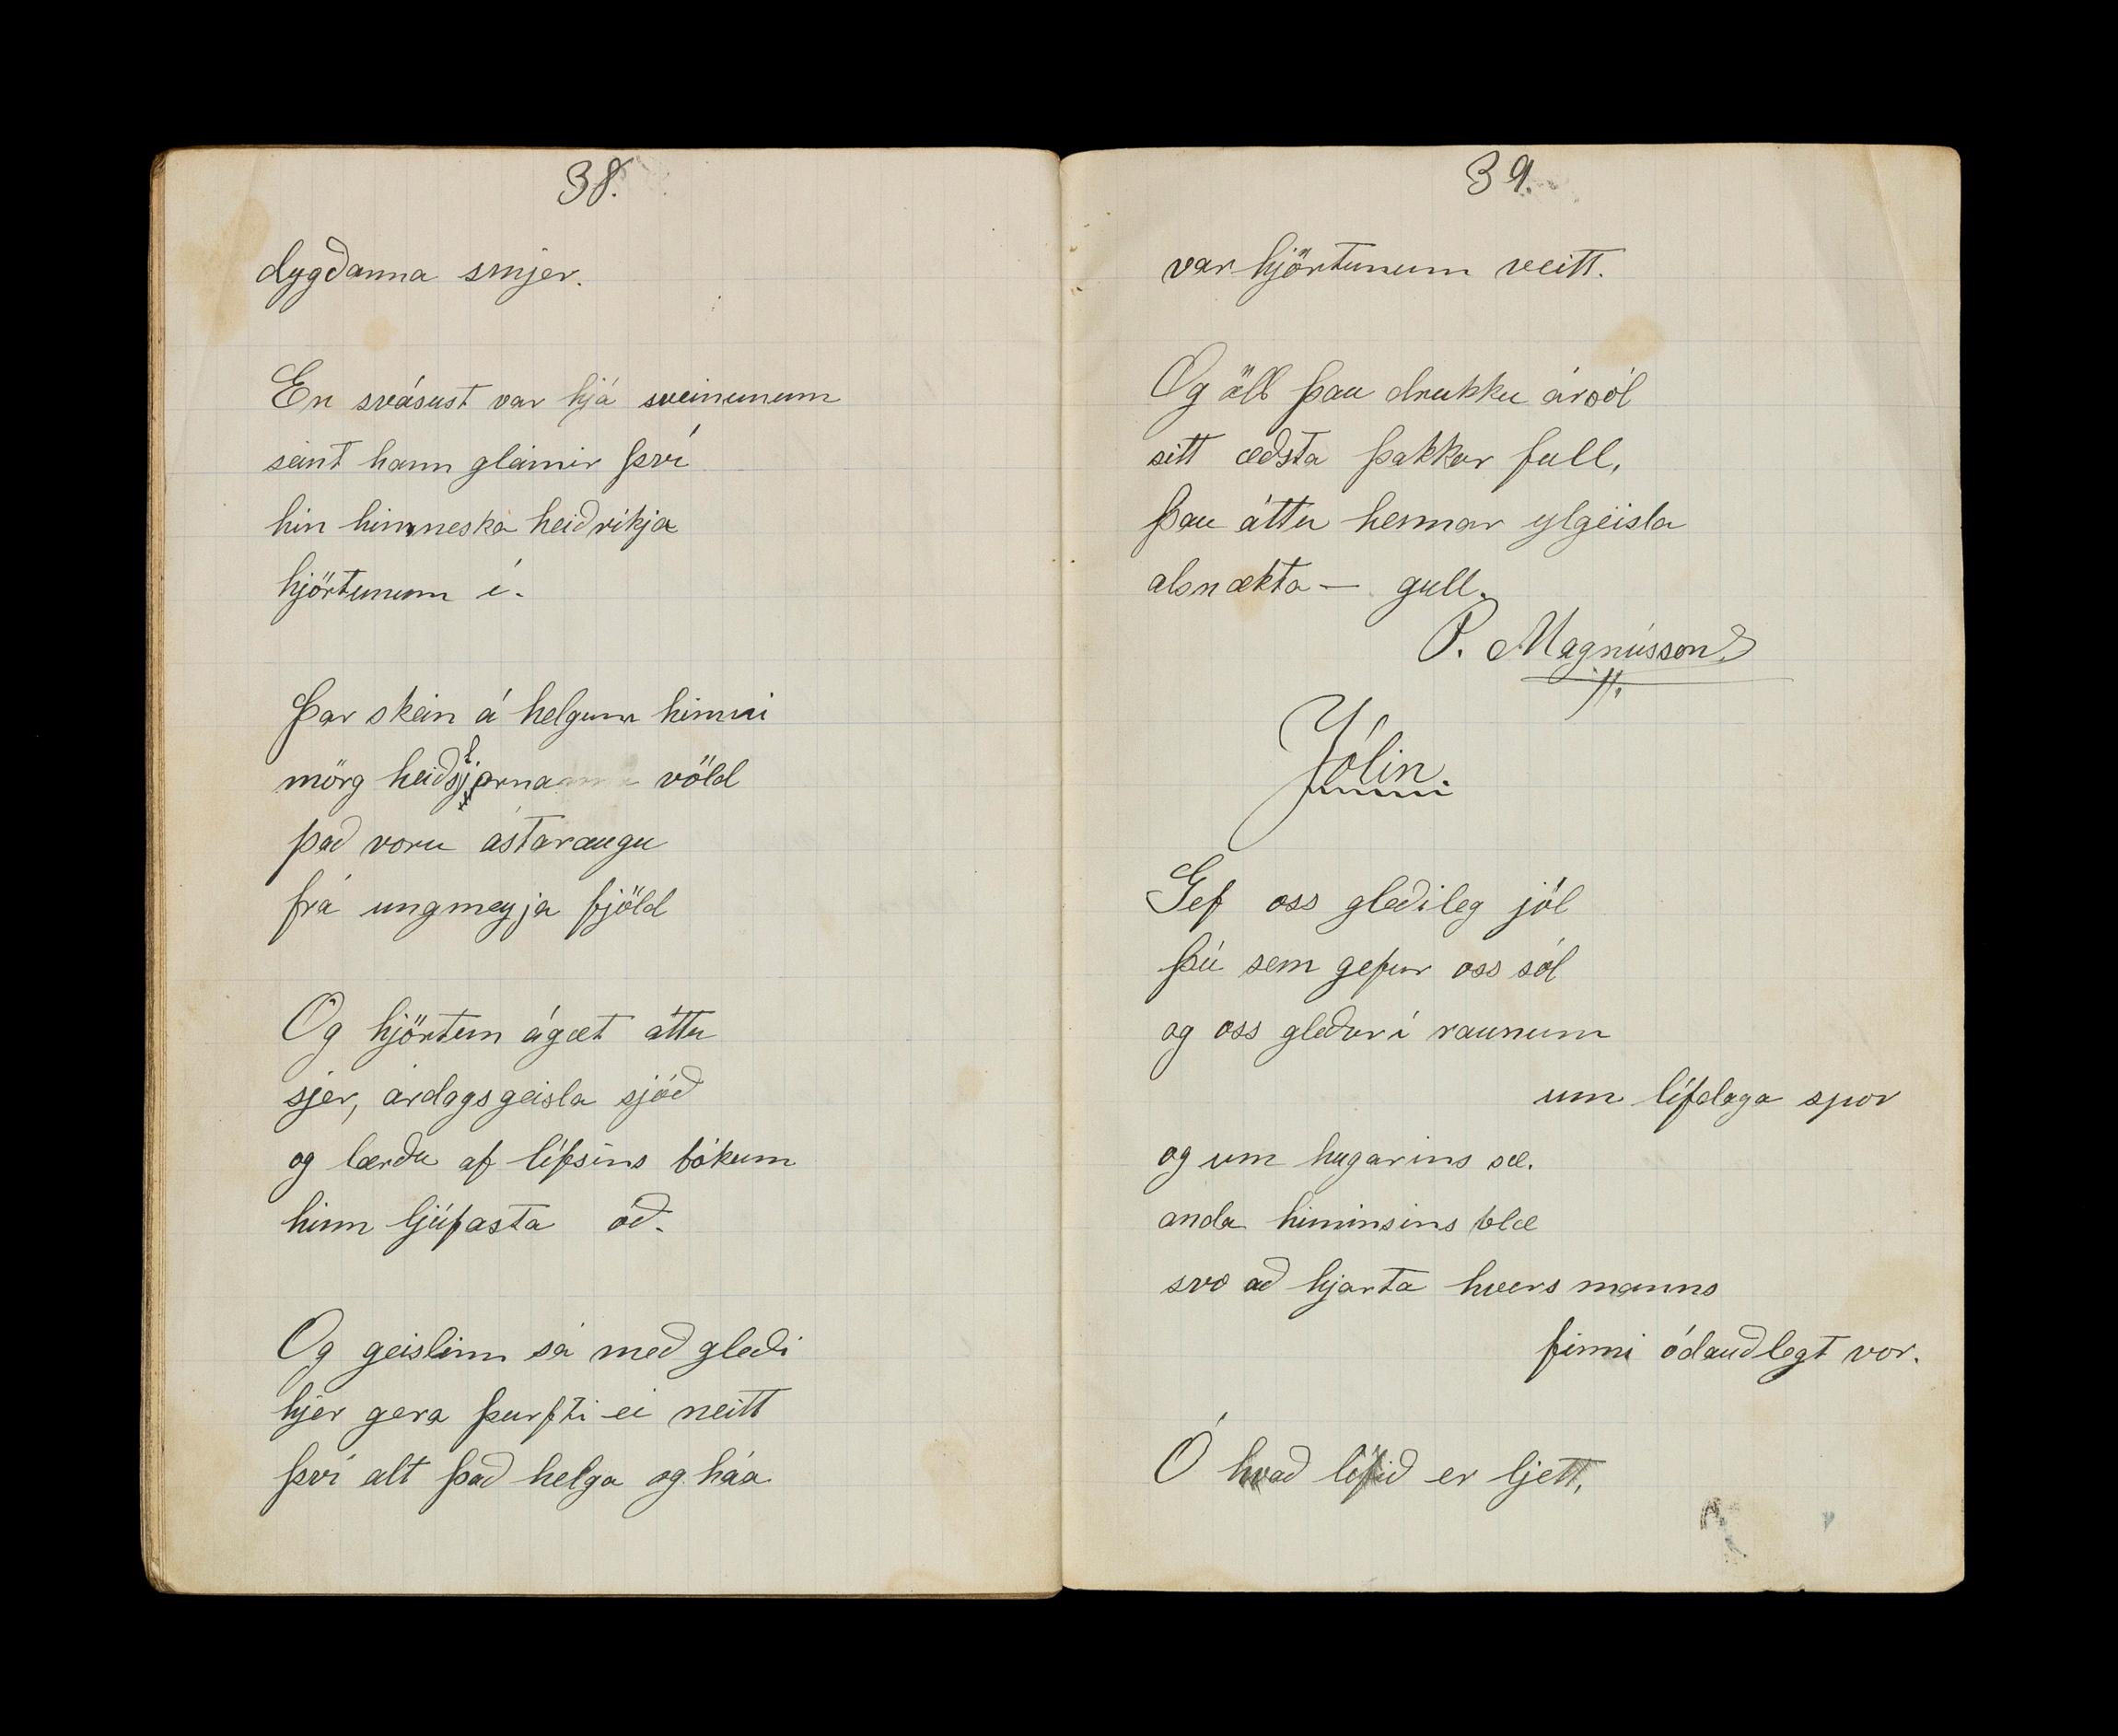 38.
dygðanna smjer.
En svásust var hjá sveinunum
seint hann gleimir því
hin himneska heiðrikja
hjörtunum í.
Þar skein á helgum himni
mörg heiðstjarna völd
það voru ástaraugu
frá ungmeyja fjöld
Og hjörtun ágæt áttu
sjer, árdagsgeisla sjóð
og lærðu af lífsins bókum
hinn ljúfasta óð.
Og geislinn sá með gleði
hjer gera þurfti ei neitt
því alt það helga og háa
39.
var hjörtunum veitt.
Og öll þau drukku ársól
sitt æðsta þakkar full,
þau áttu hennar ylgeisla
alsnækta — gull.
P. Magnússon
Jólin.
Gef oss gleðileg jól
þú sem gefur oss sól
og oss gleður í raunum
um lífdaga spor
og um hugarins sæ.
anda himinsins blæ
svo að hjarta hvers manns
finni ódauðlegt vor.
Ó hvað lífið er ljett,